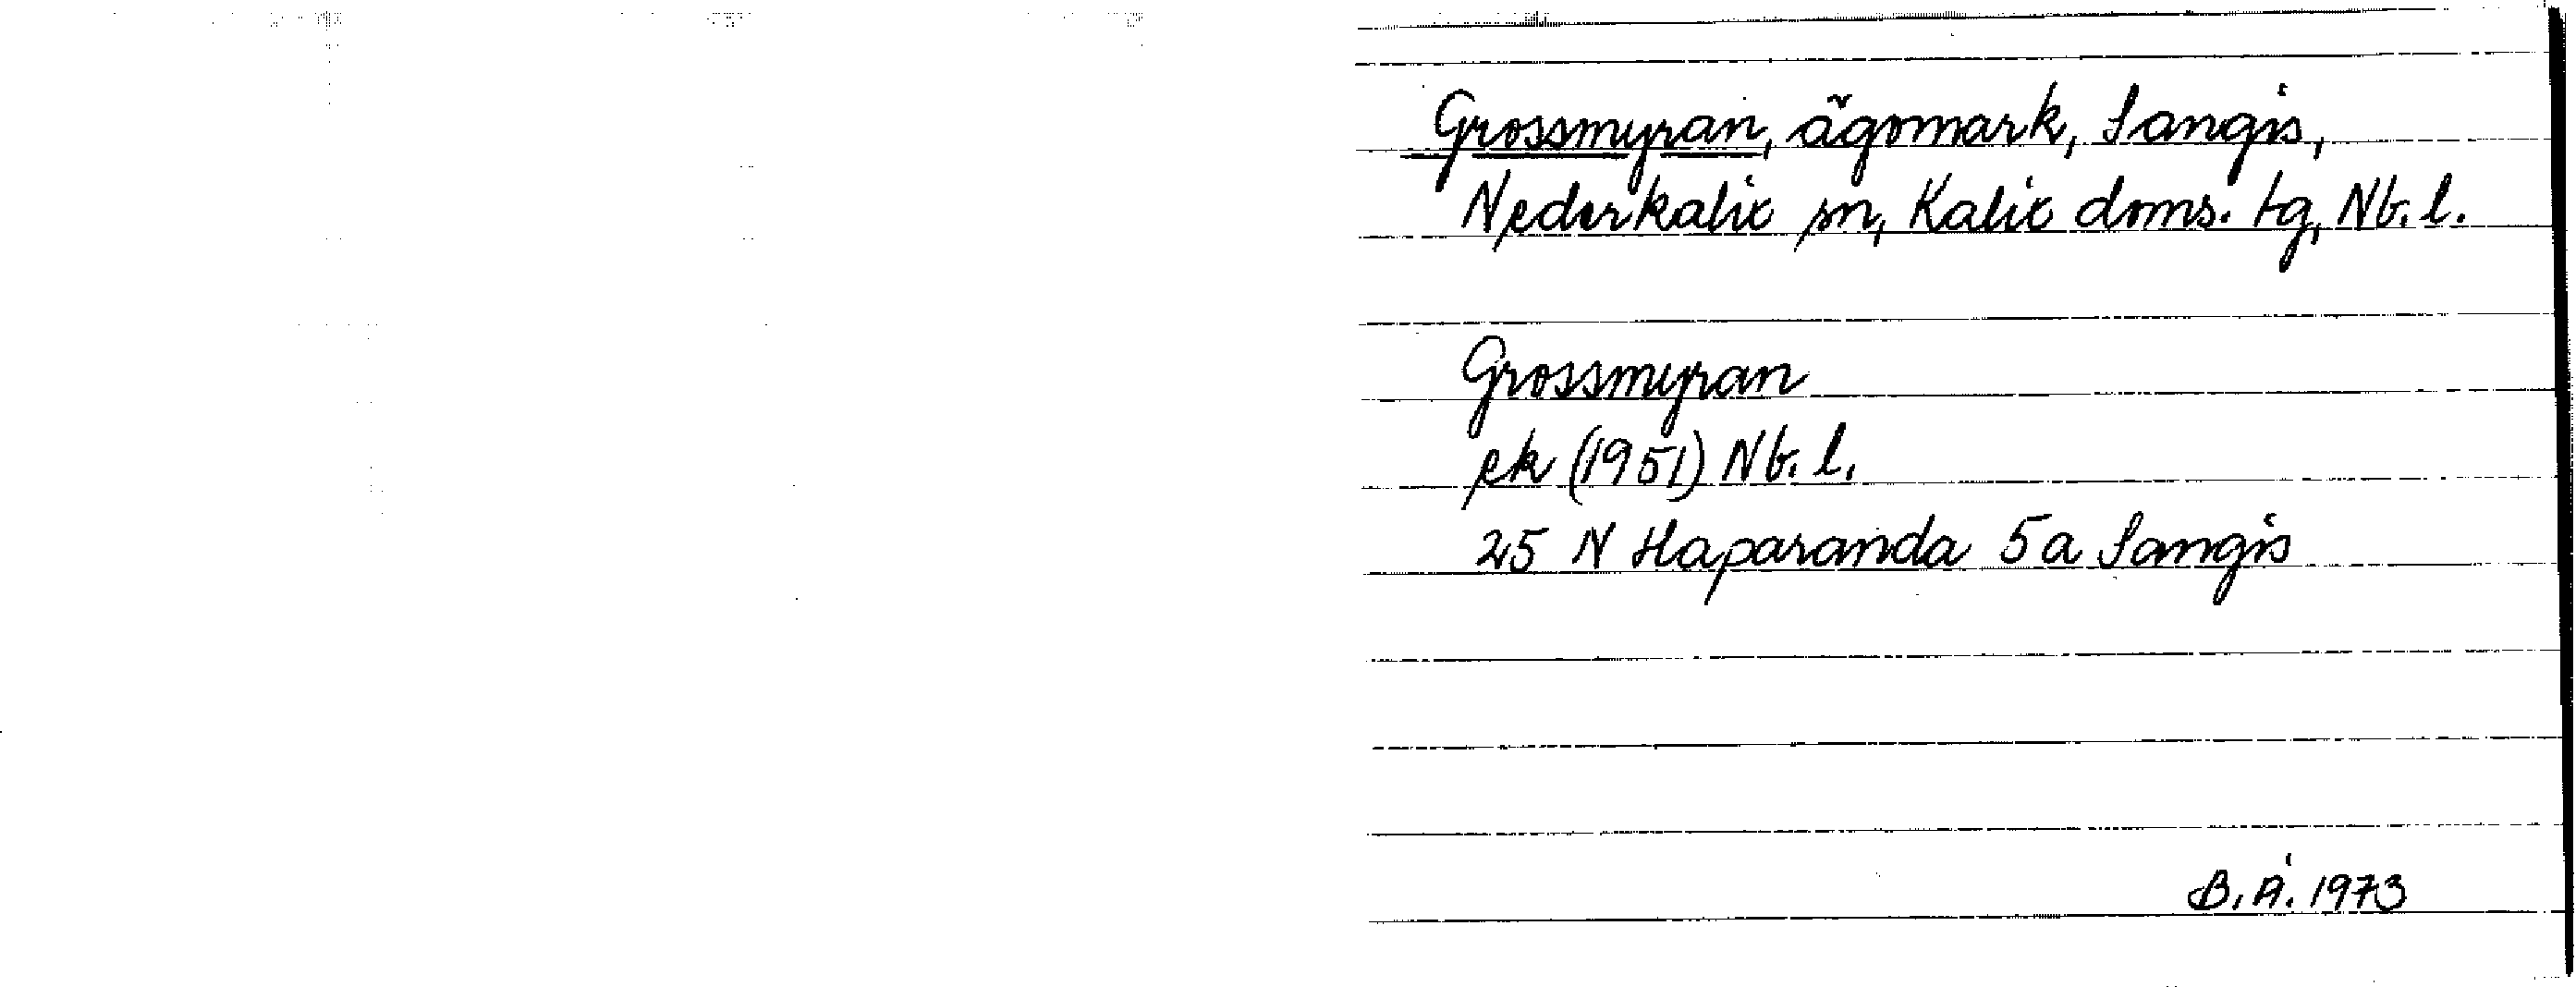 Grossmyran, ägomark, Sangis,
Nederkalix sn, Kalix doms. tg, Nb. l.
Grossmyran
ek (1951) Nb. l.
25 N Haparanda 5a Sangis
B. Å. 1973